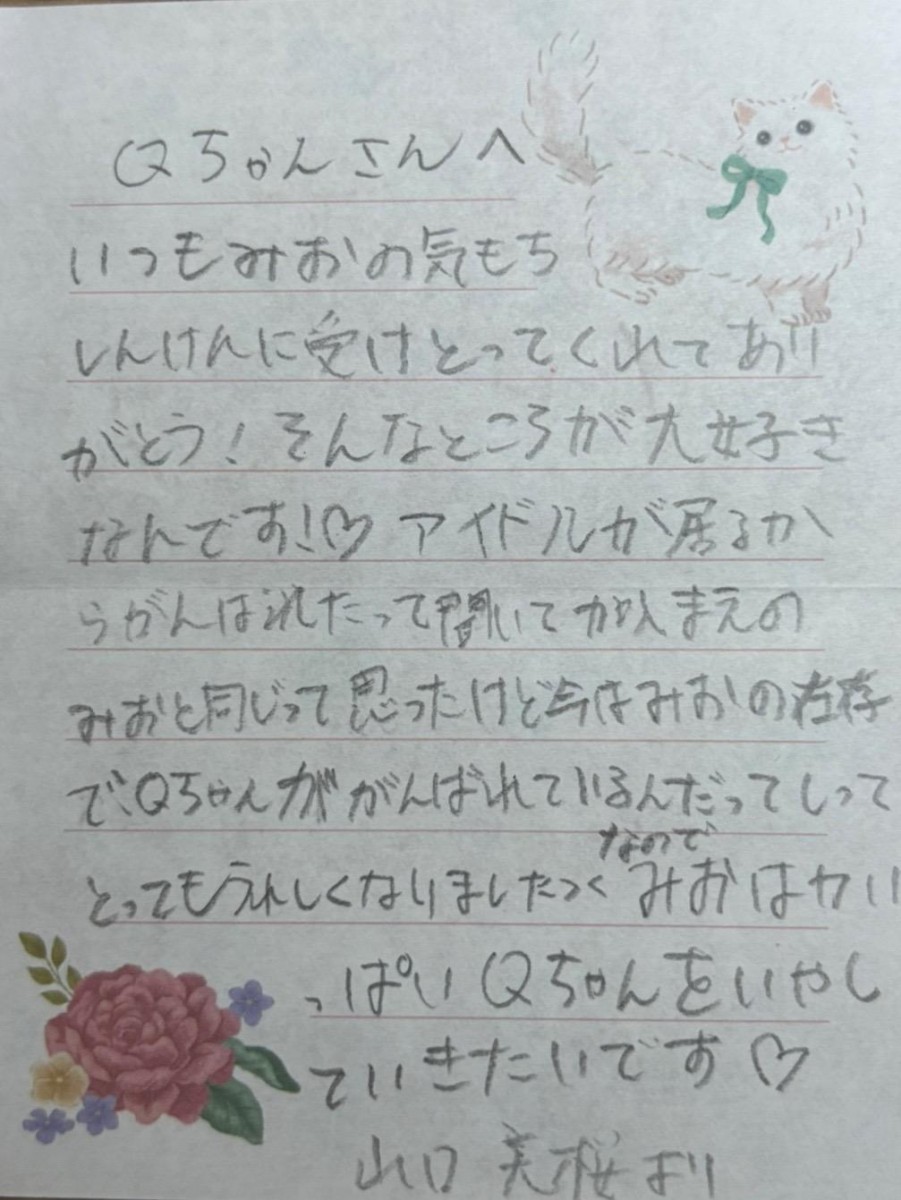 Qちゃんさんへ
いつもみおの気もち
しんけんに受けとってくれてあり
がとう!そんなところが大好き
なんです!♡ アイドルが居るか
らがんばれたって聞いて まえの
みおと同じって思ったけど今はみおの存在
でQちゃんががんばれているんだってしって
なので
とってもうれしくなりました みおは力い
っぱいQちゃんをいやし
ていきたいです♡
山口 美桜より